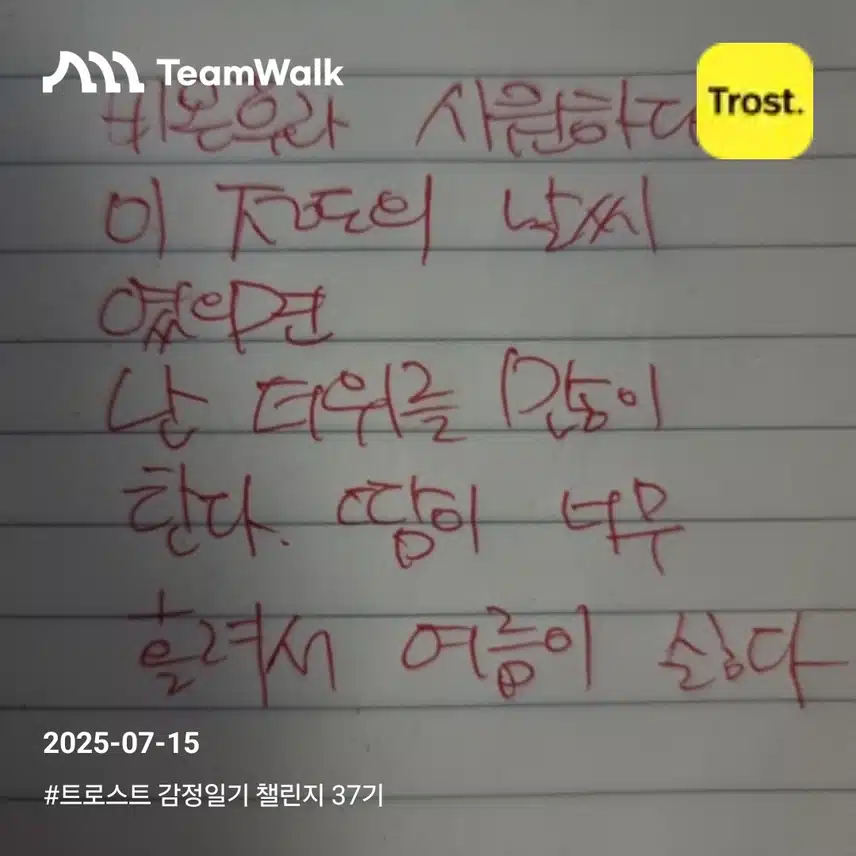 TeamWalk
Trost.
비온후라 시원하다
이 정도의 날씨
였의면
난 더위를 많이
탄다. 땀이 너무
흘려서 여름이 싫다
2025-07-15
#트로스트 감정일기 챌린지 37기